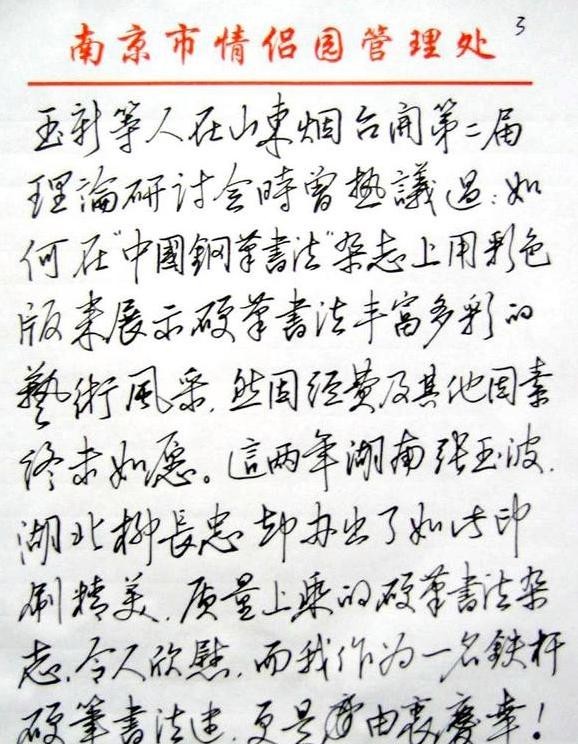 3
南京市情侣园管理处
玉新等人在山東烟台開第二届
理論研討会時曾热議過：如
何在“中國鋼筆書法”杂志上用彩色
版来展示硬筆書法丰富多彩的
藝術風采，然因經費及其他因素
终未如愿。這两年湖南张玉波，
湖北柳長忠却办出了如此印
刷精美、质量上乘的硬筆書法杂
志，令人欣慰，而我作为一名鉄杆
硬筆書法迷，更是由衷慶幸！